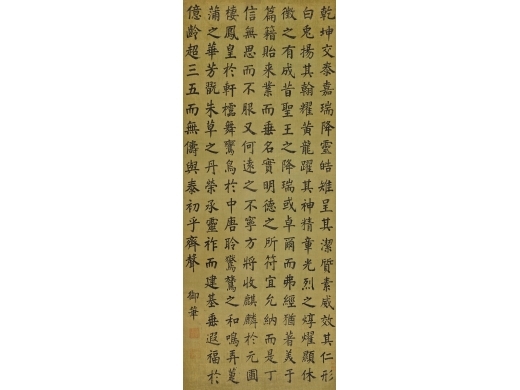 乾坤交泰嘉瑞降靈皓雉呈其潔質素威效其仁形
白兎揚其翰耀黃龍躍其神精章光烈之焞燿顯休
徵之有成昔聖王之降瑞或卓爾而弗經猶著美于
篇籍貽來業而垂名實明德之所符宜允納而是丁
信無思而不服又何遠之不寧方將收麒麟於元囿
棲鳳皇於軒櫺舞鸞烏於中唐聆鸑鷟之和鳴弄萐
蒲之華芳翫朱草之丹榮承靈祚而建基垂遐福於
億齡超三五而無儔與泰初乎齊聲
御筆